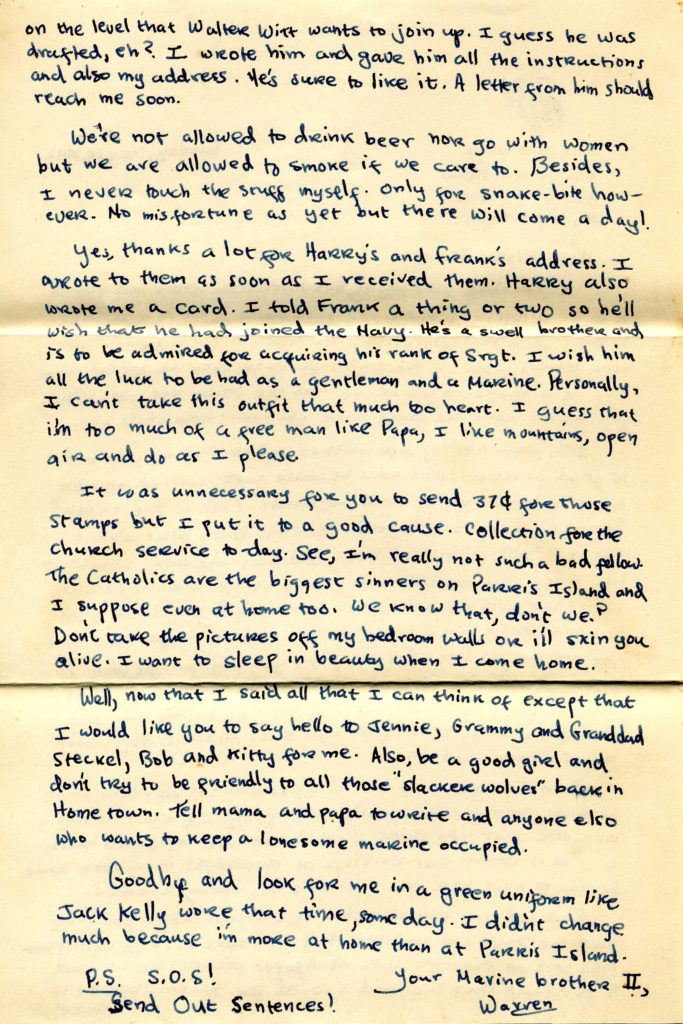 on the level that Walter Witt wants to join up. I guess he was
drafted, eh? I wrote him and gave him all the instructions
and also my address. He's sure to like it. A letter from him should
reach me soon.
We're not allowed to drink beer nor go with women
but we are allowed to smoke if we care to. Besides,
I never touch the stuff myself. Only for snake-bite how-
ever. No misfortune as yet but there will come a day!
Yes, thanks a lot for Harry's and Frank's address. I
wrote to them as soon as I received them. Harry also
wrote me a card. I told Frank a thing or two so he'll
wish that he had joined the Navy. He's a swell brother and
is to be admired for acquiring his rank of Srgt. I wish him
all the luck to be had as a gentleman and a Marine. Personally,
I can't take this outfit that much too heart. I guess that
i'm too much of a free man like Papa, I like mountains, open
air and do as I please.
It was unnecessary for you to send 37¢ for those
stamps but I put it to a good cause. Collection for the
church service to-day. See, I'm really not such a bad fellow.
The Catholics are the biggest sinners on Parris Island and
I suppose even at home too. We know that, don't we?
Don't take the pictures off my bedroom walls or i'll skin you
alive. I want to sleep in beauty when I come home.
Well, now that I said all that I can think of except that
I would like you to say hello to Jennie, Grammy and Granddad
Steckel, Bob and Kitty for me. Also, be a good girl and
don't try to be friendly to all those "slacker wolves" back in
Home town. Tell mama and papa to write and anyone else
who wants to keep a lonesome marine occupied.
Goodby and look for me in a green uniform like
Jack Kelly wore that time, some day. I didn't change
much because i'm more at home than at Parris Island.
P.S. S.O.S! Your Marine brother II,
Send Out Sentences! Warren